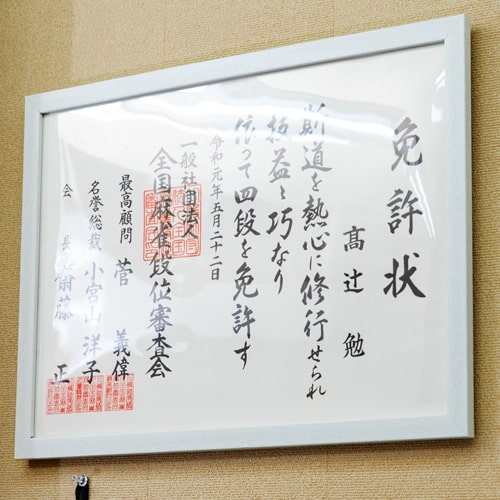 免許状
髙辻勉
斯道を熱心に修行せられ
技益々巧なり
依つて四段を免許す
令和元年五月二十二日
一般社団法人
全国麻雀段位審査会
最高顧問 菅 義偉
名誉総裁 小宮山洋子
会長 齋藤 正